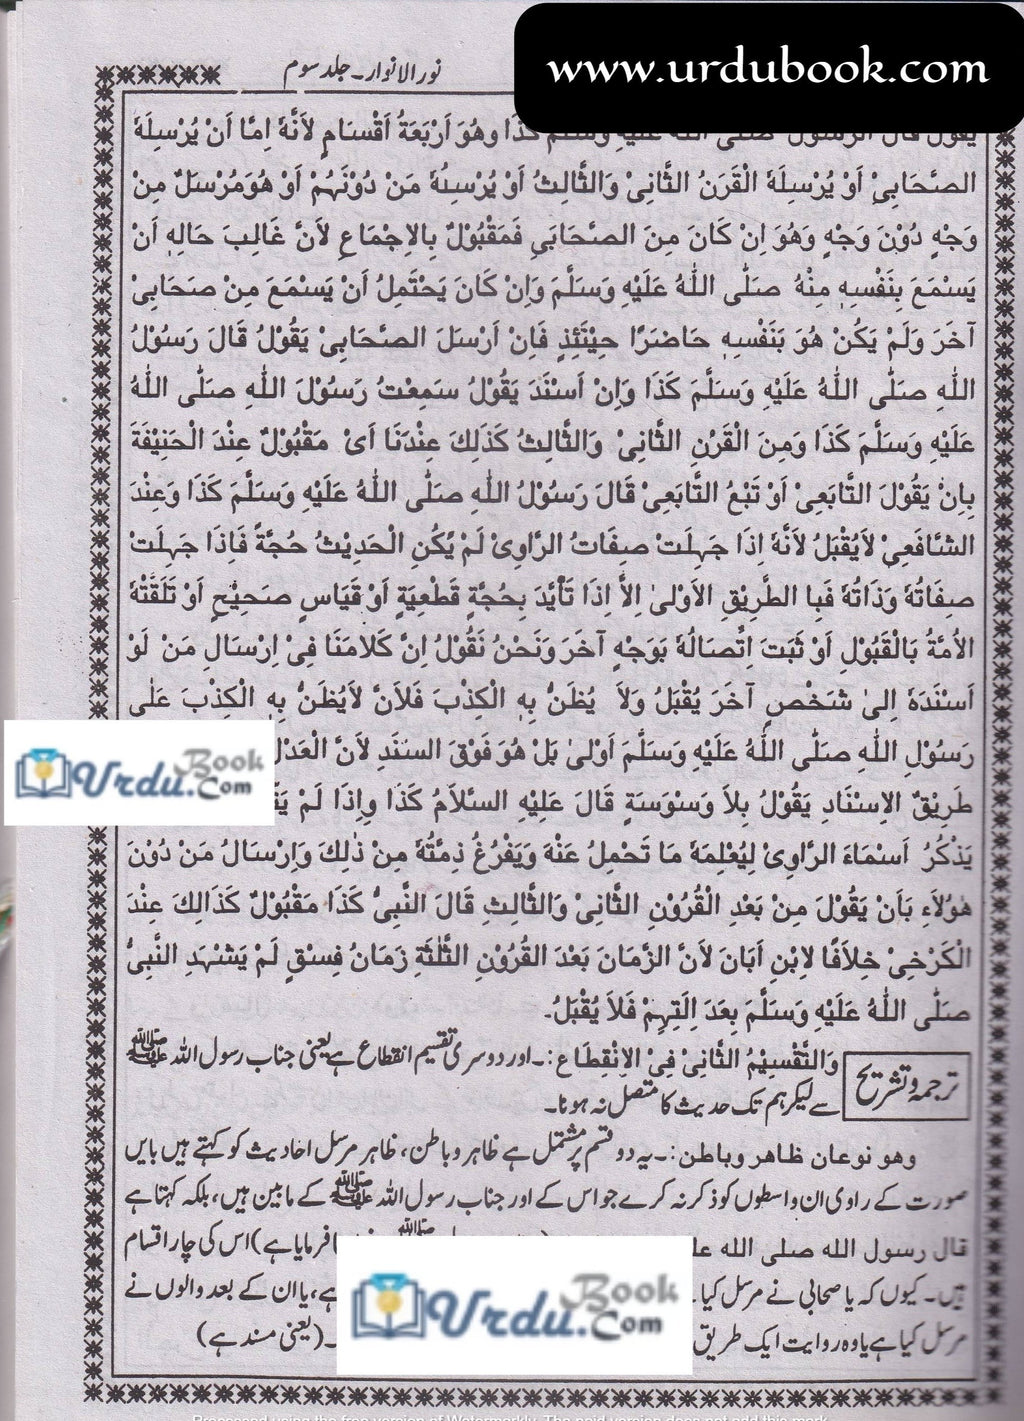 www.urdubook.com
نور الانوار۔ جلد سوم
كَذَا وَهُوَ أَرْبَعَةُ أَقْسَامٍ لِأَنَّهُ اِمَّا اَنْ يُرْسِلَهُ
الصَّحَابِىْ اَوْ يُرْسِلَهُ الْقَرْنُ الثَّانِىْ وَالثَّالِثُ اَوْ يُرْسِلُهُ مَنْ دُوْنَهُمْ اَوْ هُوَ مُرْسَلٌ مِنْ
وَجْهٍ دُوْنَ وَجْهٍ وَهُوَ اِنْ كَانَ مِنَ الصَّحَابِىِ فَمَقْبُوْلٌ بِالِاجْمَاعِ لِاَنَّ غَالِبَ حَالِهٖ اَنْ
يَسْمَعَ بِنَفْسِهٖ مِنْهُ صَلَّى اللّٰهُ عَلَيْهِ وَسَلَّمَ وَاِنْ كَانَ يَحْتَمِلُ اَنْ يَسْمَعَ مِنْ صَحَابِىْ
آخَرَ وَلَمْ يَكُنْ هُوَ بَنَفْسِهٖ حَاضَرًا حِيْنَئِذٍ فَاِنْ اَرْسَلَ الصَّحَابِىْ يَقُوْلُ قَالَ رَسُوْلُ
اللّٰهِ صَلَّى اللّٰهُ عَلَيْهِ وَسَلَّمَ كَذَا وَاِنْ اَسْنَدَ يَقُوْلُ سَمِعْتُ رَسُوْلَ اللّٰهِ صَلَّى اللّٰهُ
عَلَيْهِ وَسَلَّمَ كَذَا وَمِنَ الْقَرْنِ الثَّانِىْ وَالثَّالِثُ كَذٰلِكَ عِنْدَنَا اَىْ مَقْبُوْلٌ عِنْدَ الْحَنِيْفَةَ
بِاِنْ يَقُوْلَ التَّابَعِىْ اَوْ تَبْعُ التَّابَعِىْ قَالَ رَسُوْلُ اللّٰهِ صَلَّى اللّٰهُ عَلَيْهِ وَسَلَّمَ كَذَا وَعِنْدَ
الشَّافَعِىْ لاَيُقْبَلُ لاَنَّهُ اِذَا جَهِلَتْ صِفَاتُ الرَّاوِىْ لَمْ يُكُنِ الْحَدِيْثُ حُجَّةً فَاِذَا جَهِلَتْ
صِفَاتُهُ وَذَاتُهُ فَبِا الطَّرِيْقِ الاَوْلىٰ اِلاَّ اِذَا تَأَيَّدَ بِحُجَّةٍ قَطْعِيَةٍ اَوْ قَيَاسٍ صَحِيْحٍ اَوْ تَلَقَتْهُ
الاُمَّةُ بَالْقَبُوْلِ اَوْ ثَبَتَ اِتِّصَالُهُ بَوَجْهٍ آخَرَ وَنَحْنُ نَقُوْلُ اِنَّ كَلاَمَنَا فِىْ اِرْسَالِ مَنْ لَوْ
اَسْنَدَهُ اِلىٰ شَخْصٍ آخَرَ يُقْبَلُ وَلاَ يُظَنُّ بِهٖ الْكِذْبَ فَلاَنَّ لاَيُظَنُّ بِهٖ الْكِذْبَ عَلٰى
رَسُوْلِ اللّٰهِ صَلَّى اللّٰهُ عَلَيْهِ وَسَلَّمَ اَوْلىٰ بَلْ هُوَ فَوْقَ السَنَدِ لاَنَّ الْعَدْلَ
Urdu Book.Com
طَرِيْقُ الاِسْنَادِ يَقُوْلُ بِلاَ وَسْوَسَةٍ قَالَ عَلَيْهِ السَّلاَمُ كَذَا وَاِذَا لَمْ
يَذْكُرُ اَسْمَاءَ الرَّاوِىْ لِيُعْلِمَهُ مَا تَحْمِلُ عَنْهُ وَيَفْرُغُ ذِمَّتُهُ مِنْ ذٰلِكَ وَاِرْسَالُ مَنْ دُوْنَ
هٰؤُلاَءِ بَأَنْ يَقُوْلَ مِنْ بَعْدِ الْقُرُوْنِ الثَّانِىْ وَالثَالِثِ قَالَ النَّبِىُّ كَذَا مَقْبُوْلٌ كَذَالِكَ عِنْدَ
الْكَرْخِىْ خِلاَفًا لاِبْنِ اَبَانَ لاَنَّ الزَّمَانَ بَعْدَ القُرُوْنِ الثَّلٰثَةِ زَمَانُ فِسْقٍ لَمْ يَشْهَدِ النَّبِىُّ
صَلَّى اللّٰهُ عَلَيْهِ وَسَلَّمَ بِعَدَ الَتِهِمْ فَلاَ يُقْبَلُ۔
ترجمہ وتشریح
وَالتَّقْسِيْمُ الثَّانِىْ فِىْ الاِنْقِطَاعِ:۔ اور دوسری تقسیم انقطاع ہے یعنی جناب رسول اللہ ﷺ
سے لیکر ہم تک حدیث کا متصل نہ ہونا۔
وهو نوعان ظاهر وباطن:۔ یہ دو قسم پر مشتمل ہے ظاہر و باطن، ظاہر مرسل احادیث کو کہتے ہیں بایں
صورت کے راوی ان واسطوں کو ذکر نہ کرے جو اس کے اور جناب رسول اللہ ﷺ کے مابین ہیں، بلکہ کہتا ہے
قال رسول الله صلى الله فرمایا ہے) اس کی چار اقسام
ہیں۔ کیوں کہ یا صحابی نے مرسل کیا ہے، یا ان کے بعد والوں نے
مرسل کیا ہے یا وہ روایت ایک طریق ۔(یعنی مسند ہے)
Urdu Book.Com